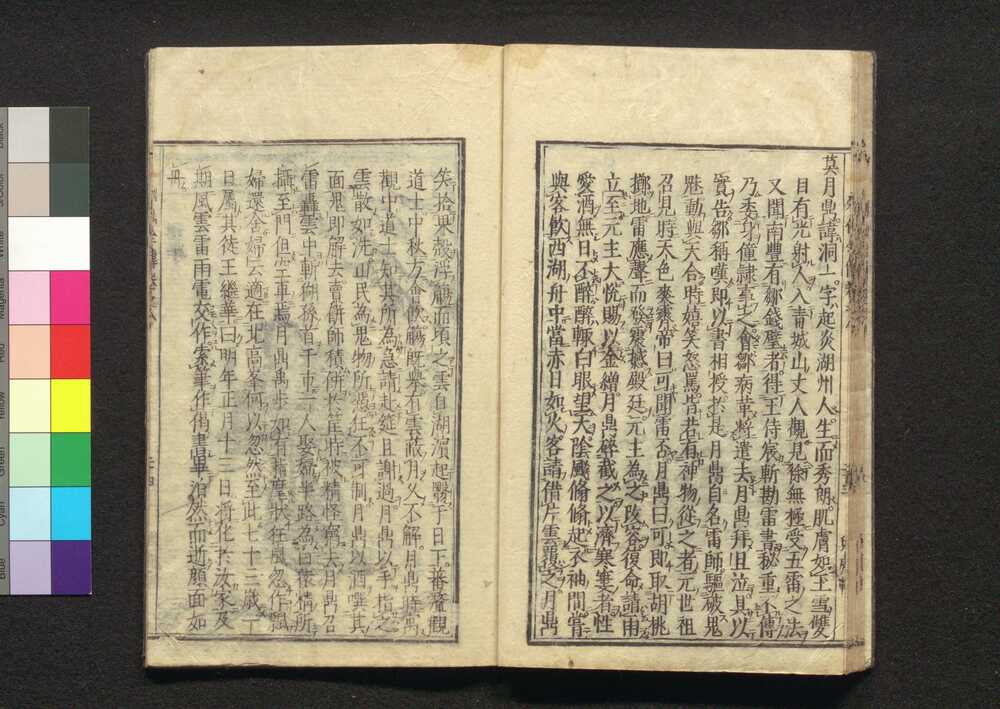 莫月鼎諱洞一字起炎湖州人生而秀朗肌膚如玉雪雙
目有光射人入青城山丈人觀見徐無極受五雷之法
又聞南豐有鄒鐵壁者得王侍宸斬勘雷書秘重不傳
乃委身僮隸事之會鄒病革將遣夫月鼎拜且泣具以
實告鄒稱嘆即以書相授於是月鼎自名雷師驅破鬼
魅動與天合時嬉笑怒罵皆若有神物從之者元世祖
召見時天色爽霽帝曰可聞雷否月鼎曰可即取胡桃
擲地雷應聲而發震撼殿廷元主為之改容復命請雨
立至元主大悅賜以金繒月鼎碎截之以濟寒窶者性
愛酒無日不醉醉輒白眼望天陰飈翛翛起衣袖間嘗
與客飲西湖舟中當赤日如火客請借片雲覆之月鼎
矣拾果殼浮觴面頃之雲自湖濱起翳于日下蕃釐觀
道士中秋方會飲觴既舉有雲蔽月久不解月鼎時寓
觀中道士知其所為急請赴筵且謝過月鼎以手指之
雲散如洗山民為鬼物所憑狂不可制月鼎以酒噀其
面鬼即解去賣餅師積餅於筐時被精怪竊去月鼎召
雷轟雲中斬獼猴首于市一人娶婦半路為白猿精所
攝至門但空車焉月鼎禹步如有指麾狀狂風忽作飄
婦還舍婦云適在北高峯何以忽然至此七十三歲一
日屬其徒王繼華曰明年正月十三日將化於汝家及
期風雲雷雨電交作索筆作偈書畢泊然而逝顏面如
丹